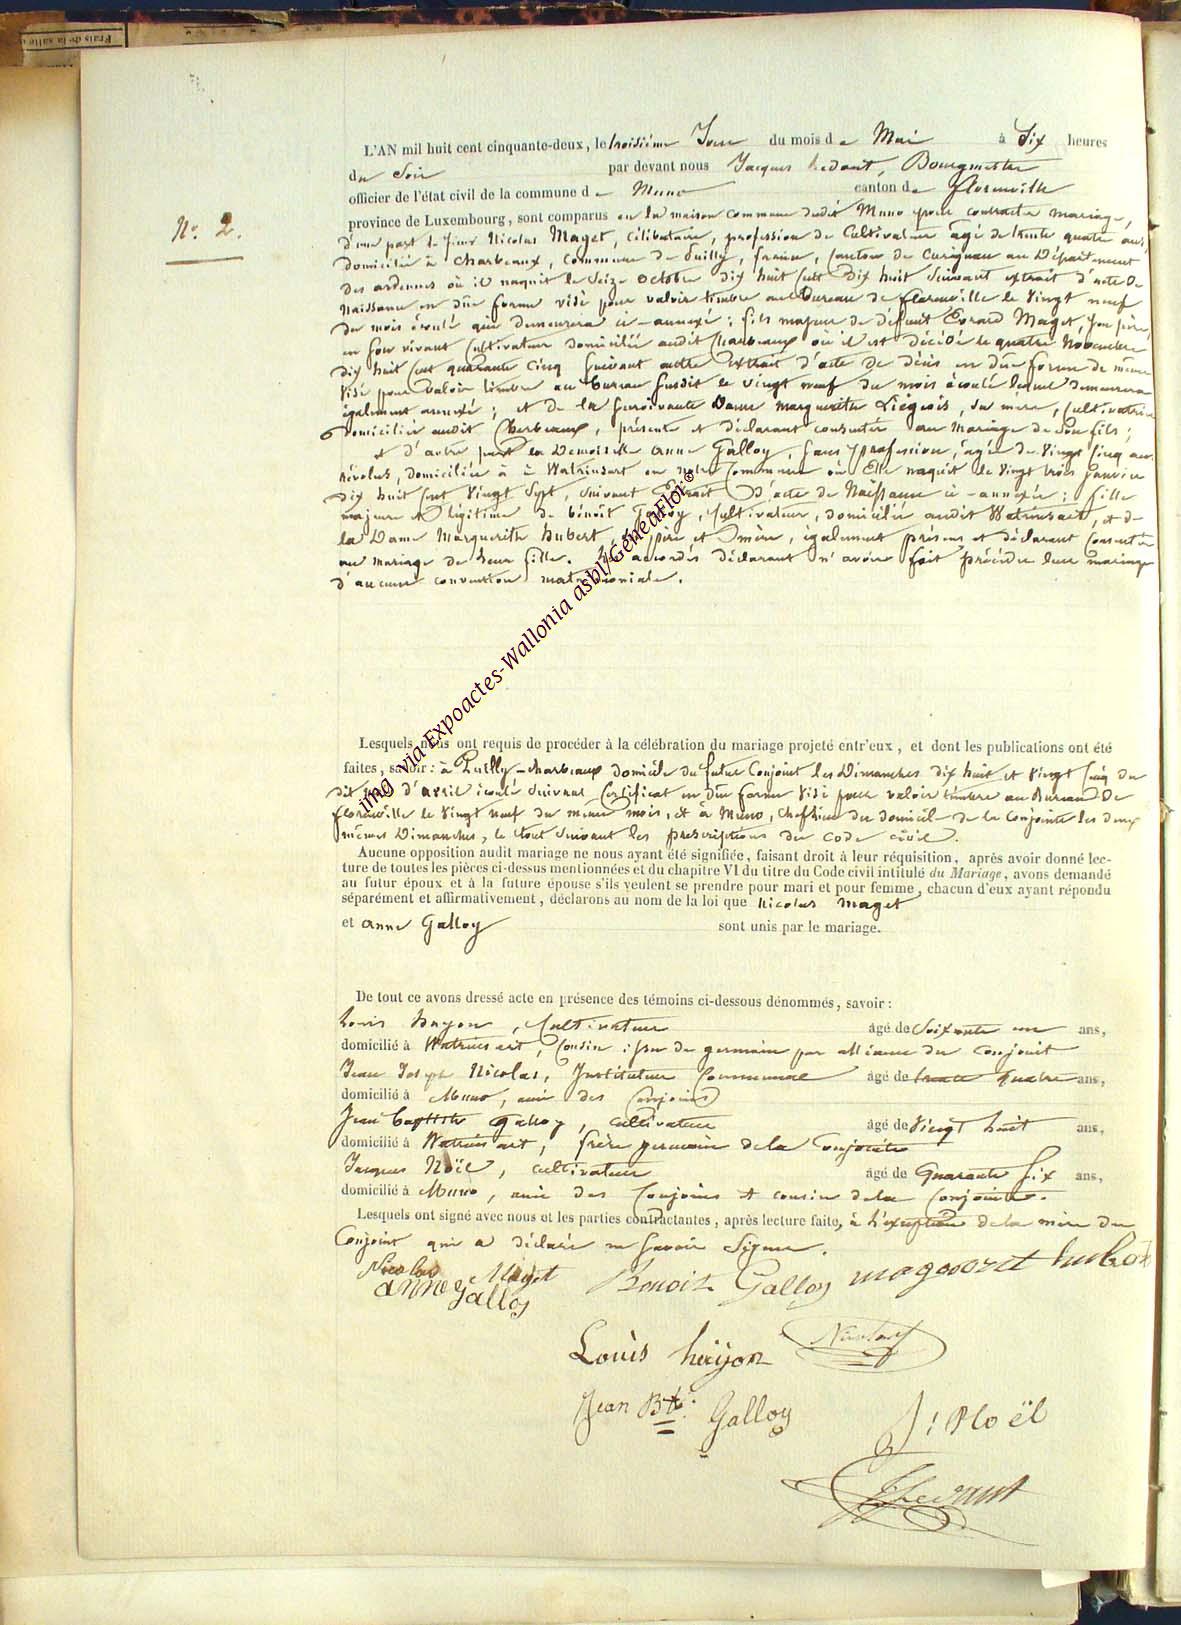 Frais de la salle
N° 2.
L'AN mil huit cent cinquante-deux, le troisième Jour du mois de Mai à Six heures
du Soir par devant nous Jacques Ledant, Bourgmestre
officier de l'état civil de la commune de Muno canton de Florenville
province de Luxembourg, sont comparus en la maison commune dudit Muno pour contracter mariage,
d'une part le sieur Nicolas Maget, célibataire, profession de Cultivateur âgé de trente quatre ans,
domicilié à Charbeaux, Commune de Puilly, france, canton de Carignan au Département
des ardennes où il naquit le Seize Octobre dix huit cent dix huit Suivant extrait d'acte de
Naissance en dûe forme visé pour valoir timbre au Bureau de florenville le vingt neuf
du mois écoulé qui demeurera ci-annexé ; fils majeur de défunt Evrard Maget, son père,
en son vivant Cultivateur domicilié audit Charbeaux où il est décédé le quatre Novembre
dix huit cent quarante cinq Suivant autre extrait d'acte de décès en dûe forme de même
visé pour valoir timbre au bureau susdit le vingt neuf du mois écoulé lequel demeurera
également annexé ; et de la survivante Dame marguerite Liégeois, sa mère, Cultivatrice
domiciliée audit Charbeaux, présente et déclarant consentir au mariage de Son fils ;
et d'autre part la Demoiselle Anne Galloy, Sans profession, âgée de vingt cinq ans
révolus, domiciliée à à Watrinsart en notre Commune où Elle naquit le vingt trois Janvier
dix huit cent vingt Sept, Suivant Extrait d'acte de Naissance ci-annexée ; fille
majeure et légitime de bénoît Galloy, Cultivateur, domicilié audit Watrinsart, et de
la Dame Marguerite hubert père et mère, également présens et déclarant consentir
au mariage de leur fille. Les accordés déclarant n'avoir fait précéder leur mariage
d'aucune convention matrimoniale.
img via Expoactes-Wallonia asbl/GénéaFlor®
Lesquels nous ont requis de procéder à la célébration du mariage projeté entr'eux, et dont les publications ont été
faites, savoir : à Puilly-charbeaux domicile du futur Conjoint les Dimanches dix huit et vingt cinq du
dit mois d'avril écoulé Suivant Certificat en dûe forme visé pour valoir timbre au Bureau de
florenville le vingt neuf du même mois, et à Muno, chef-lieu du domicile de la conjointe les deux
mêmes Dimanches, le tout Suivant les prescriptions du code civil.
Aucune opposition audit mariage ne nous ayant été signifiée, faisant droit à leur réquisition, après avoir donné lec-
ture de toutes les pièces ci-dessus mentionnées et du chapitre VI du titre du Code civil intitulé du Mariage, avons demandé
au futur époux et à la future épouse s'ils veulent se prendre pour mari et pour femme, chacun d'eux ayant répondu
séparément et affirmativement, déclarons au nom de la loi que Nicolas Maget
et Anne Galloy sont unis par le mariage.
De tout ce avons dressé acte en présence des témoins ci-dessous dénommés, savoir :
Louis hayon, Cultivateur âgé de Soixante un ans,
domicilié à Watrinsart, Cousin issu de germain par alliance du conjoint
Jean Joseph Nicolas, Instituteur Communal âgé de trente quatre ans,
domicilié à Muno, ami des Conjoins
Jean baptiste Galloy, Cultivateur âgé de Vingt huit ans,
domicilié à Watrinsart, frère germain de la Conjointe
Jacques Noël, cultivateur âgé de Quarante Six ans,
domicilié à Muno, ami des Conjoins et cousin de la Conjointe.
Lesquels ont signé avec nous et les parties contractantes, après lecture faite, à l'exception de la mère du
Conjoint qui a déclaré ne savoir Signer.
Nicolas Maget Benoit Galloy magooret hubert
anne galloy
Louis häyon Nicolas
Jean Bte Galloy J: Noël
J Ledant